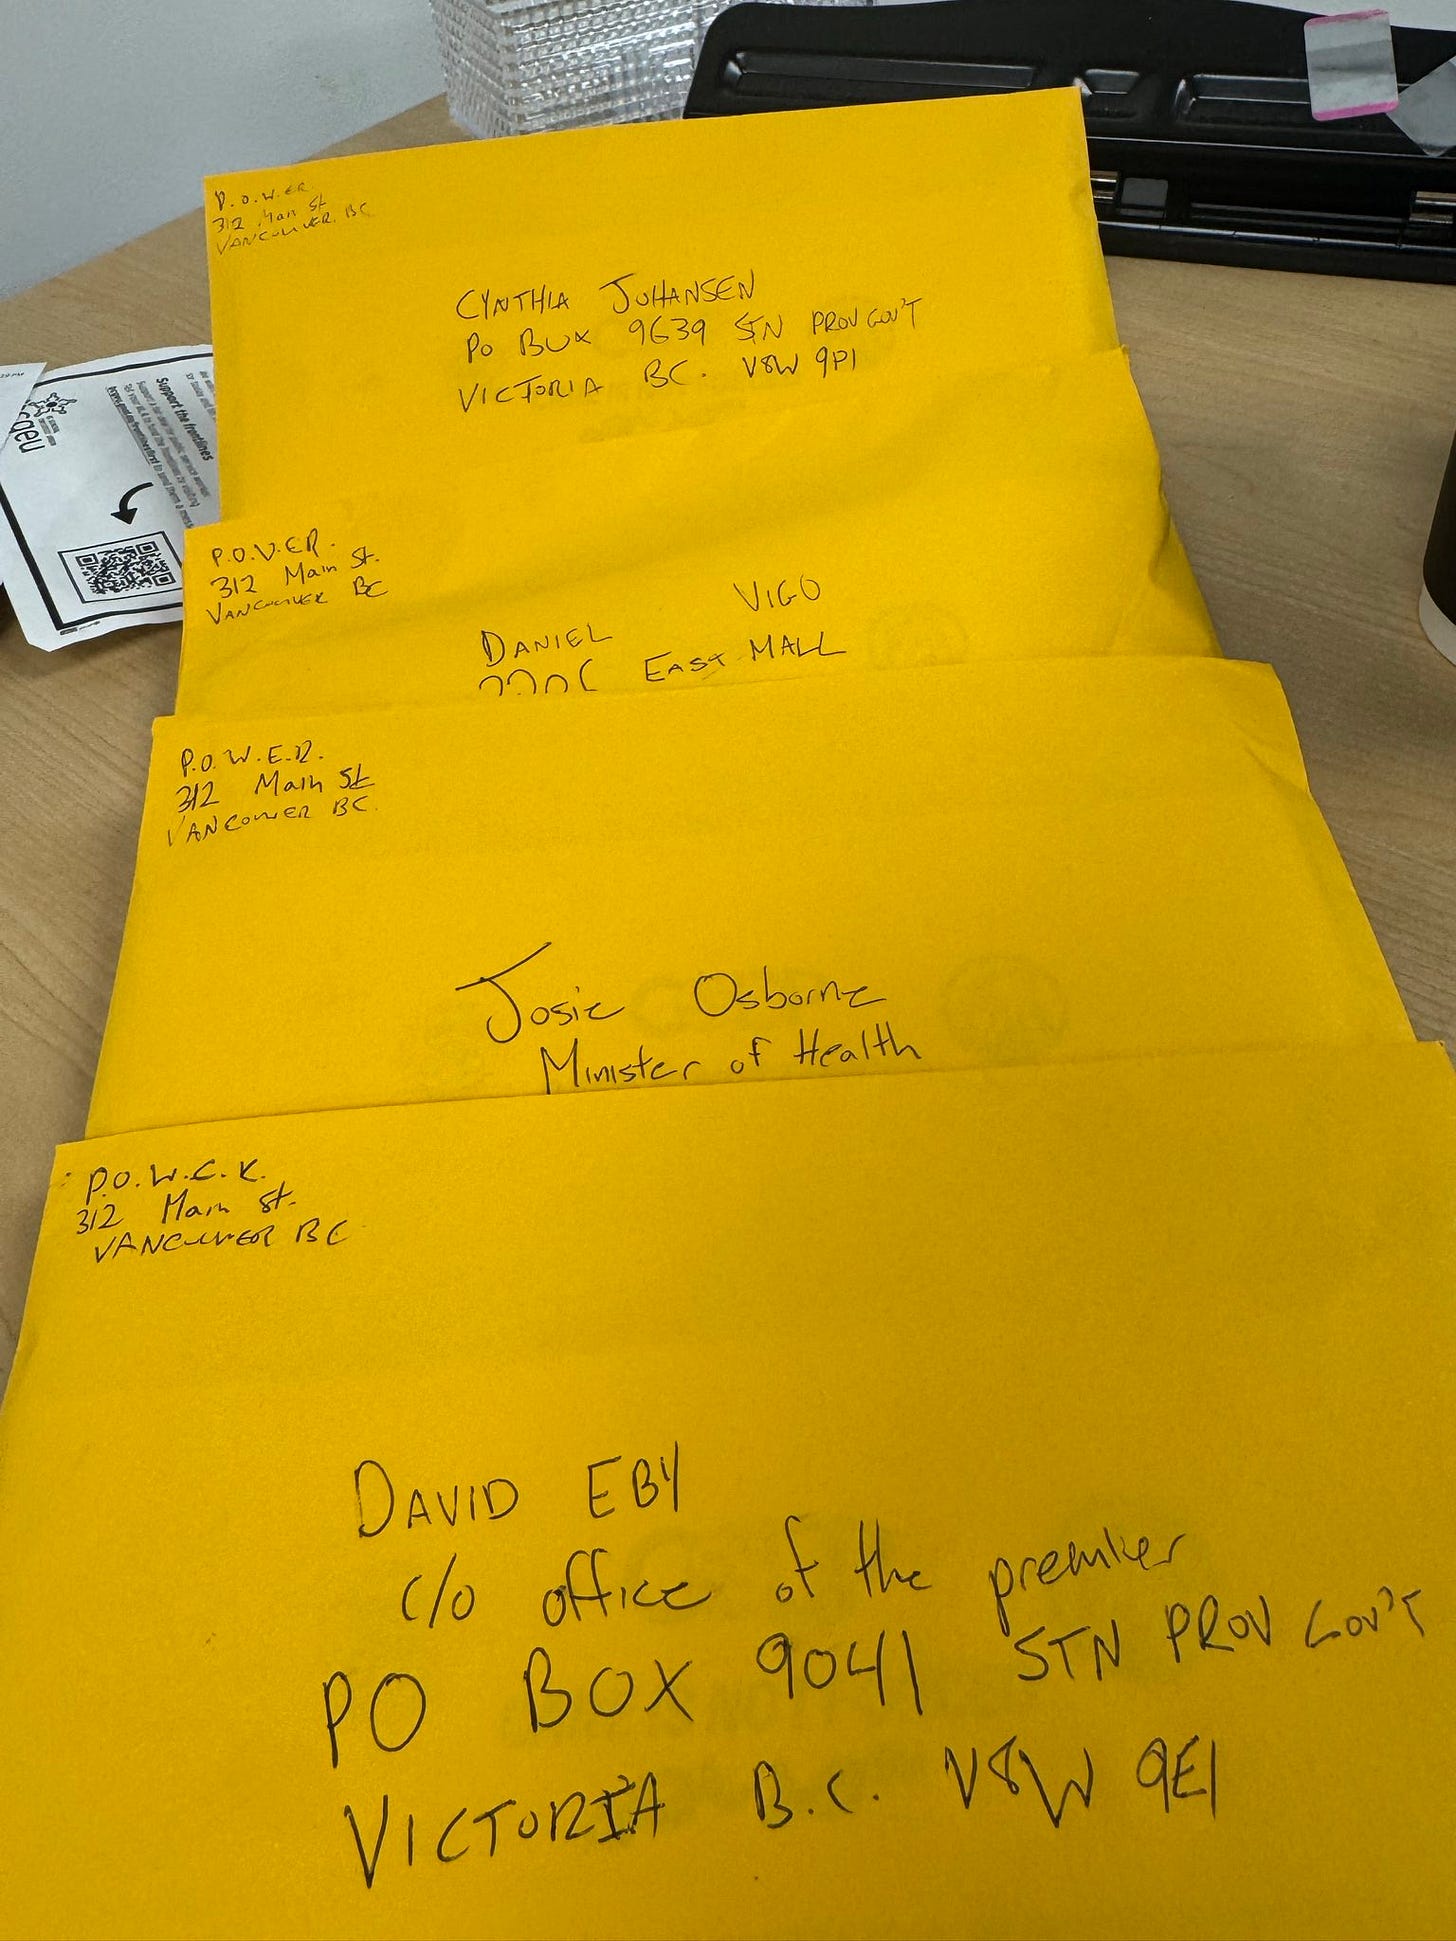 P.O.W.ER
312 Main St
VANCOUVER. BC
CYNTHIA JOHANSEN
PO BOX 9639 STN PROV GOV'T
VICTORIA BC. V8W 9P1
P.O.W.ER.
312 Main St.
VANCOUVER BC
DANIEL VIGO
EAST MALL
P.O.W.E.R.
312 Main St
VANCOUVER BC.
Josie Osborne
Minister of Health
P.O.W.E.R.
312 Main St.
VANCOUVER BC
DAVID EBY
c/o office of the premier
PO BOX 9041 STN PROV GOV'T
VICTORIA B.C. V8W 9E1
Support the frontlines